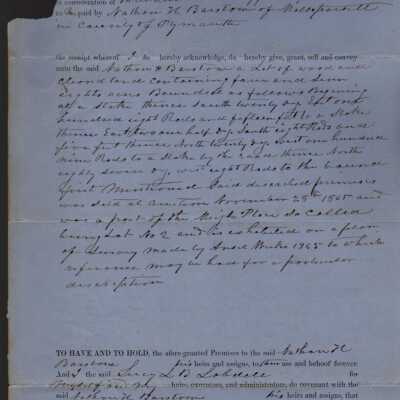 in consideration of
to me paid by Nathan H Barstow of Mattapoisett
in County of Plymouth
the receipt whereof I do hereby acknowledge, do hereby give, grant, sell and convey
unto the said Nathan H Barstow a Lot of wood and
Cleard land containing four and seven
eights acres Bounded as follows Begining
at a Stake thence South twenty deg East one
hundred eight Rods and fifteen feet to a Stake
thence East two one half deg South eight Rods and
five feet thence North twenty deg West one hundred
nine Rods to a Stake by the road thence North
eighty seven deg West eight Rods to the bound
first Mentioned Said described premises
was sold at auction November 25th 1865 and
was a part of the So called
being Lot No 2 and is exhibited on a plan
of Survey made by 1865 to which
reference may be had for a particular
description
TO HAVE AND TO HOLD, the afore-granted Premises to the said Nathan H
Barstow his heirs and assigns, to his use and behoof forever
And I the said Lucy L B Lobdell for
myself and my heirs, executors, and administrators, do covenant with the
said Nathan H Barstow his heirs and assigns, that